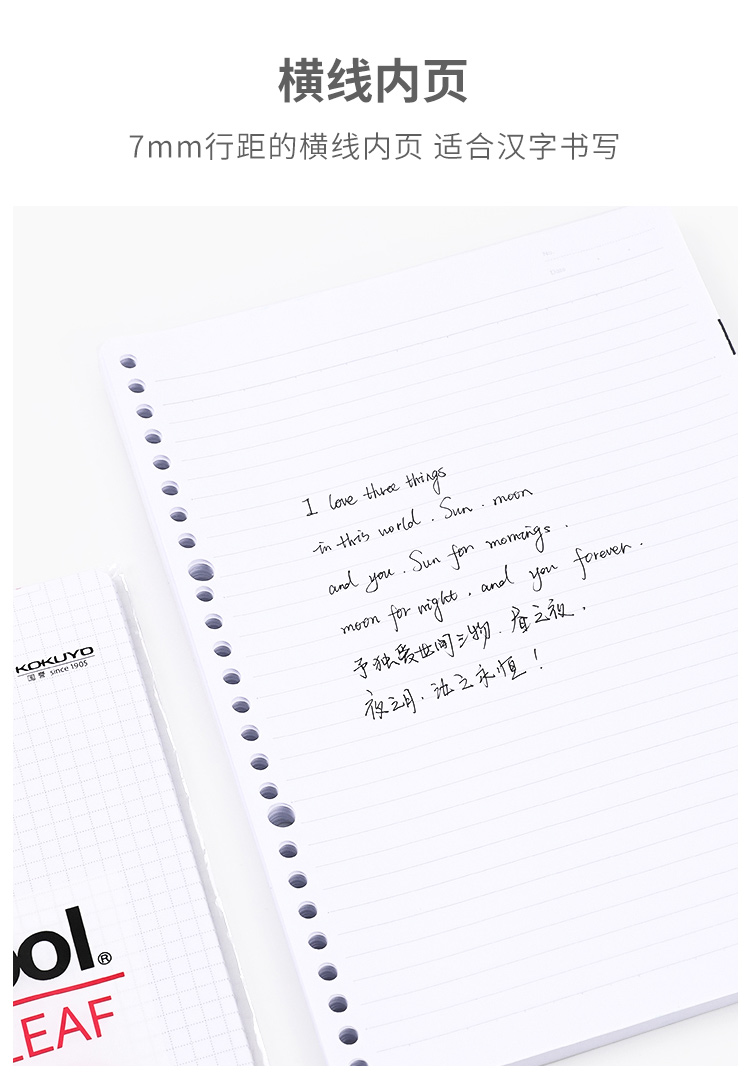 横线内页
7mm行距的横线内页 适合汉字书写
No.
Date
I love three things
in this world. Sun. moon
and you. Sun for mornings.
moon for night, and you forever.
予独爱世间三物.昼之夜.
夜之月.汝之永恒!
KOKUYO
国誉 since 1905
ool®
LEAF